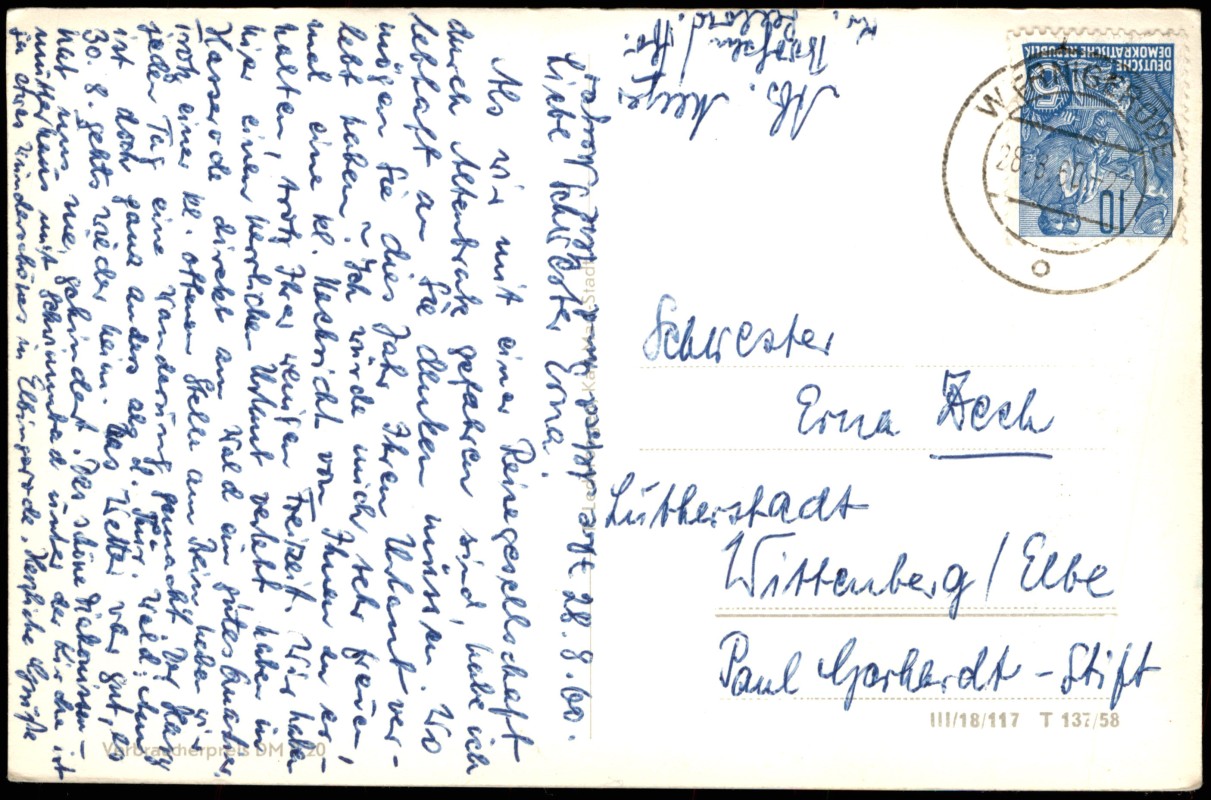 28. 8. 60.
Liebe Schwester Erna!
Als wir mit einer Reisegesellschaft
durch Altenbrak gefahren sind, habe ich
lebhaft an Sie denken müssen. Wo
mögen Sie dies Jahr Ihren Urlaub ver-
lebt haben? Ich würde mich sehr freuen,
mal eine kl. Nachricht von Ihnen zu er-
halten, trotz Ihrer wenigen Freizeit. Wir haben
hier einen herrlichen Urlaub verlebt, haben in
Hasserode direkt am Wald ein gutes Quartier,
trotz einer kl. offenen Stelle am Bein haben wir
jeden Tag eine Wanderung gemacht. Der Harz
ist doch ganz anders als d. Thür. Wald. Am
30. 8. gehts wieder heim. Das Wetter war gut, es
hat uns nie gehindert. Das schöne Diakonissen-
mutterhaus mit Schwimmbad unter der Kirche ist
ja etwas Wunderschönes in Elbingerode. Herzliche Grüße
Abs. Meyer
Schwester
Erna Zech
Lutherstadt
Wittenberg/Elbe
Paul Gerhardt-Stift
DEUTSCHE
DEMOKRATISCHE REPUBLIK
10
5
WERNIGERODE
28.8.60
III/18/117 T 137/58
Verbraucherpreis DM 0,20